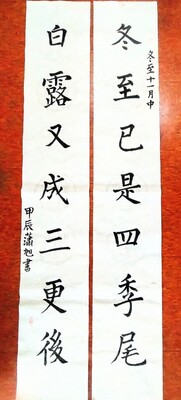 冬至十一月中
冬至已是四季尾
白露又成三更後
甲辰瀟旭書